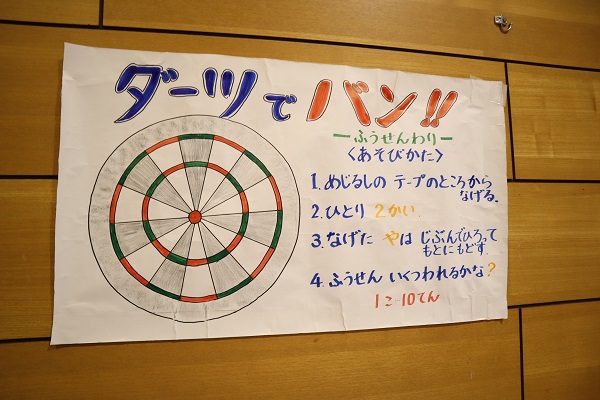 ダーツで バン!!
ーふうせんわりー
〈あそびかた〉
1. めじるしの テープのところから
なげる。
2. ひとり 2かい.
3. なげた やは じぶんでひろって
もとにもどす.
4. ふうせん いくつわれるかな?
1こ-10てん